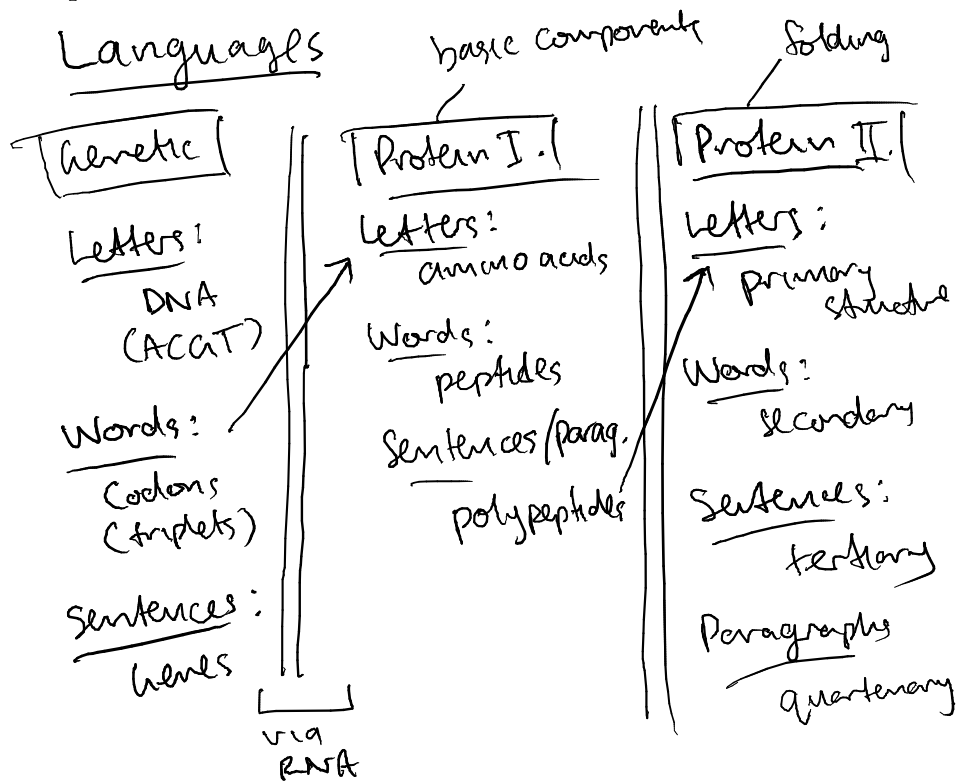 Languages
basic components
folding
Genetic
Letters:
DNA
(ACGT)
Words:
Codons
(triplets)
Sentences:
Genes
via
RNA
Protein I.
Letters:
amino acids
Words:
peptides
Sentences/parag.
polypeptides
Protein II.
Letters:
primary
structure
Words:
secondary
Sentences:
tertiary
Paragraphs
quarternary